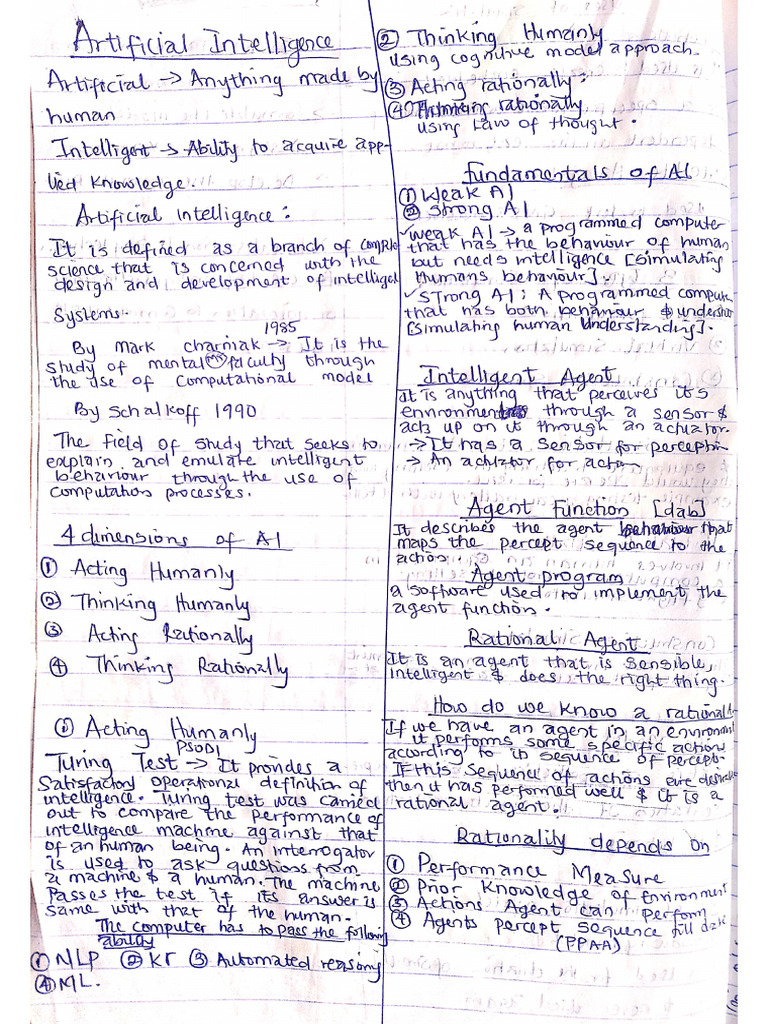 Artificial Intelligence
Artificial → Anything made by
human
Intelligent → Ability to acquire app-
lied knowledge.
Artificial Intelligence:
It is defined as a branch of
science that is concerned with the
design and development of
systems.
1985
By Mark charniak → It is the
study of mental faculty through
the use of computational model
By Schalkoff 1990
The field of study that seeks to
explain and emulate intelligent
behaviour through the use of
computation processes.
4 dimensions of AI
① Acting Humanly
② Thinking Humanly
③ Acting Rationally
④ Thinking Rationally
① Acting Humanly
Turing Test → It provides a
Satisfactory operational definition of
intelligence. Turing test was carried
out to compare the performance of
intelligence machine against that
of an human being. An interrogator
is used to ask questions from
a machine & a human. The machine
passes the test if its answer is
same with that of the human.
The computer has to pass the following
ability
① NLP ② Kr ③ Automated reasoning
④ ML.
② Thinking Humanly
using cognitive model approach.
③ Acting rationally:
④ Thinking rationally
using Law of thought.
Fundamentals of AI
① Weak AI
② Strong AI
✓ weak AI → a programmed computer
that has the behaviour of human
but needs intelligence [simulating
Humans behaviour].
✓ STrong AI: A programmed
that has both behaviour &
[simulating human Understanding].
Intelligent Agent
It is anything that perceives its
environment through a sensor &
acts up on it through an actuator.
→ It has a sensor for
→ An actuator for action
Agent Function [dab]
It describes the agent behaviour that
maps the percept sequence to the
action.
Agent program
a software used to implement the
agent function.
Rational Agent
It is an agent that is sensible,
intelligent & does the right thing.
How do we know a
If we have an agent in an environment
it performs some specific action
according to its sequence of percept.
If this sequence of actions are
then it has performed well & it is a
rational agent.
Rationality depends on
① Performance Measure
② Prior Knowledge of Environment
③ Actions Agent can perform
④ Agents percept sequence till date
(PPAA)